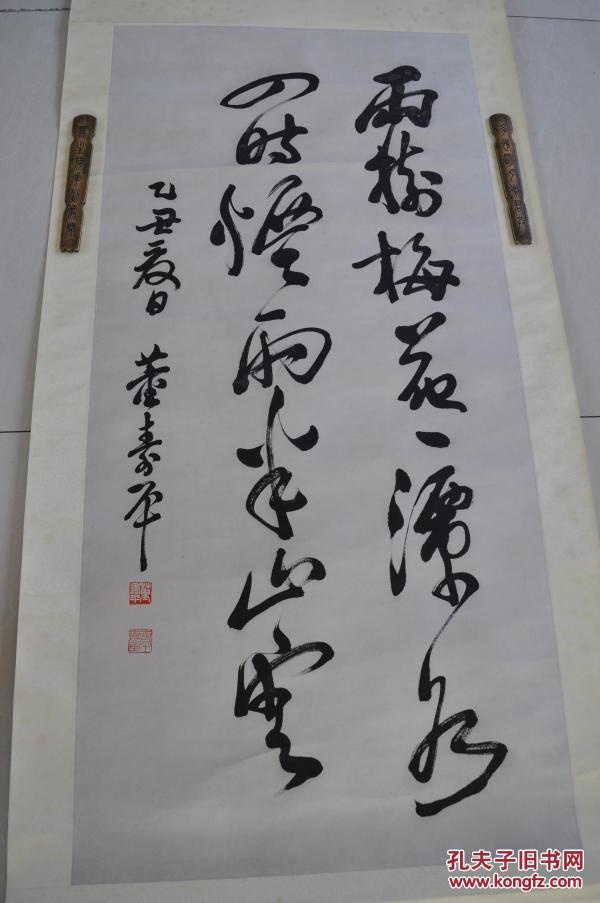 兩樹梅花一潭水
四時煙雨半山雲
乙丑夏日 董壽平
孔夫子旧书网
www.kongfz.com